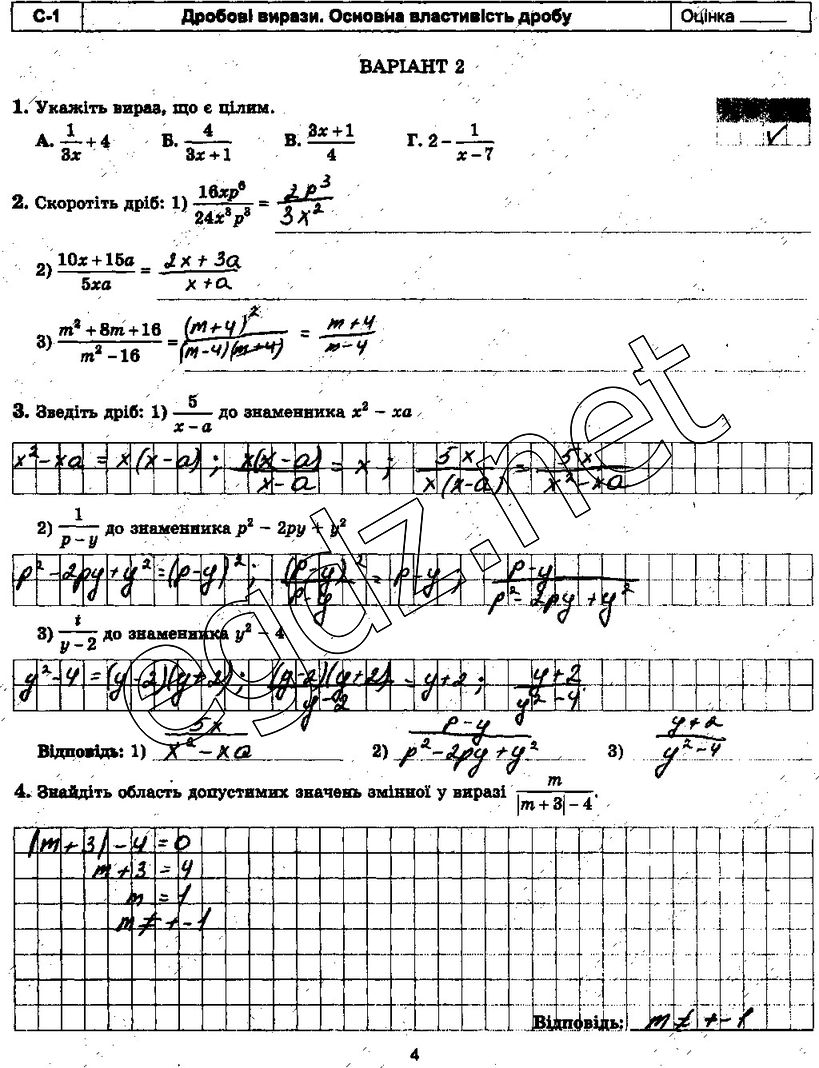 С-1 Дробові вирази. Основна властивість дробу Оцінка ______
ВАРІАНТ 2
1. Укажіть вираз, що є цілим.
А. 1/3x + 4 Б. 4/3x + 1 В. 3x + 1/4 Г. 2 − 1/x − 7
✓
2. Скоротіть дріб: 1) 16xp⁶/24x³p³ = 2p³/3x²
2) 10x + 15a/5xa = 2x + 3a/x + a
3) m² + 8m + 16/m² − 16 = (m+4)²/(m−4)(m+4) = m+4/m−4
3. Зведіть дріб: 1) 5/x − a до знаменника x² − xa
x² − xa = x(x−a); x(x−a)/x−a = x; 5x/x(x−a) = 5x/x²−xa
2) 1/p − y до знаменника p² − 2py + y²
p² − 2py + y² = (p−y)²; (p−y)²/p−y = p−y; p−y/p²−2py+y²
3) t/y − 2 до знаменника y² − 4
y²−4 = (y−2)(y+2); (y−2)(y+2)/y−2 = y+2; y+2/y²−4
Відповідь: 1) 5x/x²−xa 2) p−y/p²−2py+y² 3) y+2/y²−4
4. Знайдіть область допустимих значень змінної у виразі m/|m + 3| − 4.
|m+3|−4=0
m+3=4
m=1
m≠+−1
Відповідь: m≠+−1
4
egdz.net